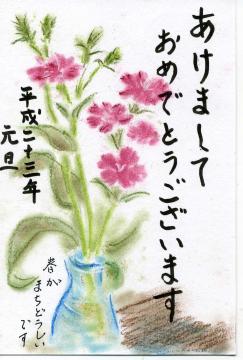 あけまして
おめでとうございます
平成二十三年
元旦
春が
まちどうしい
です